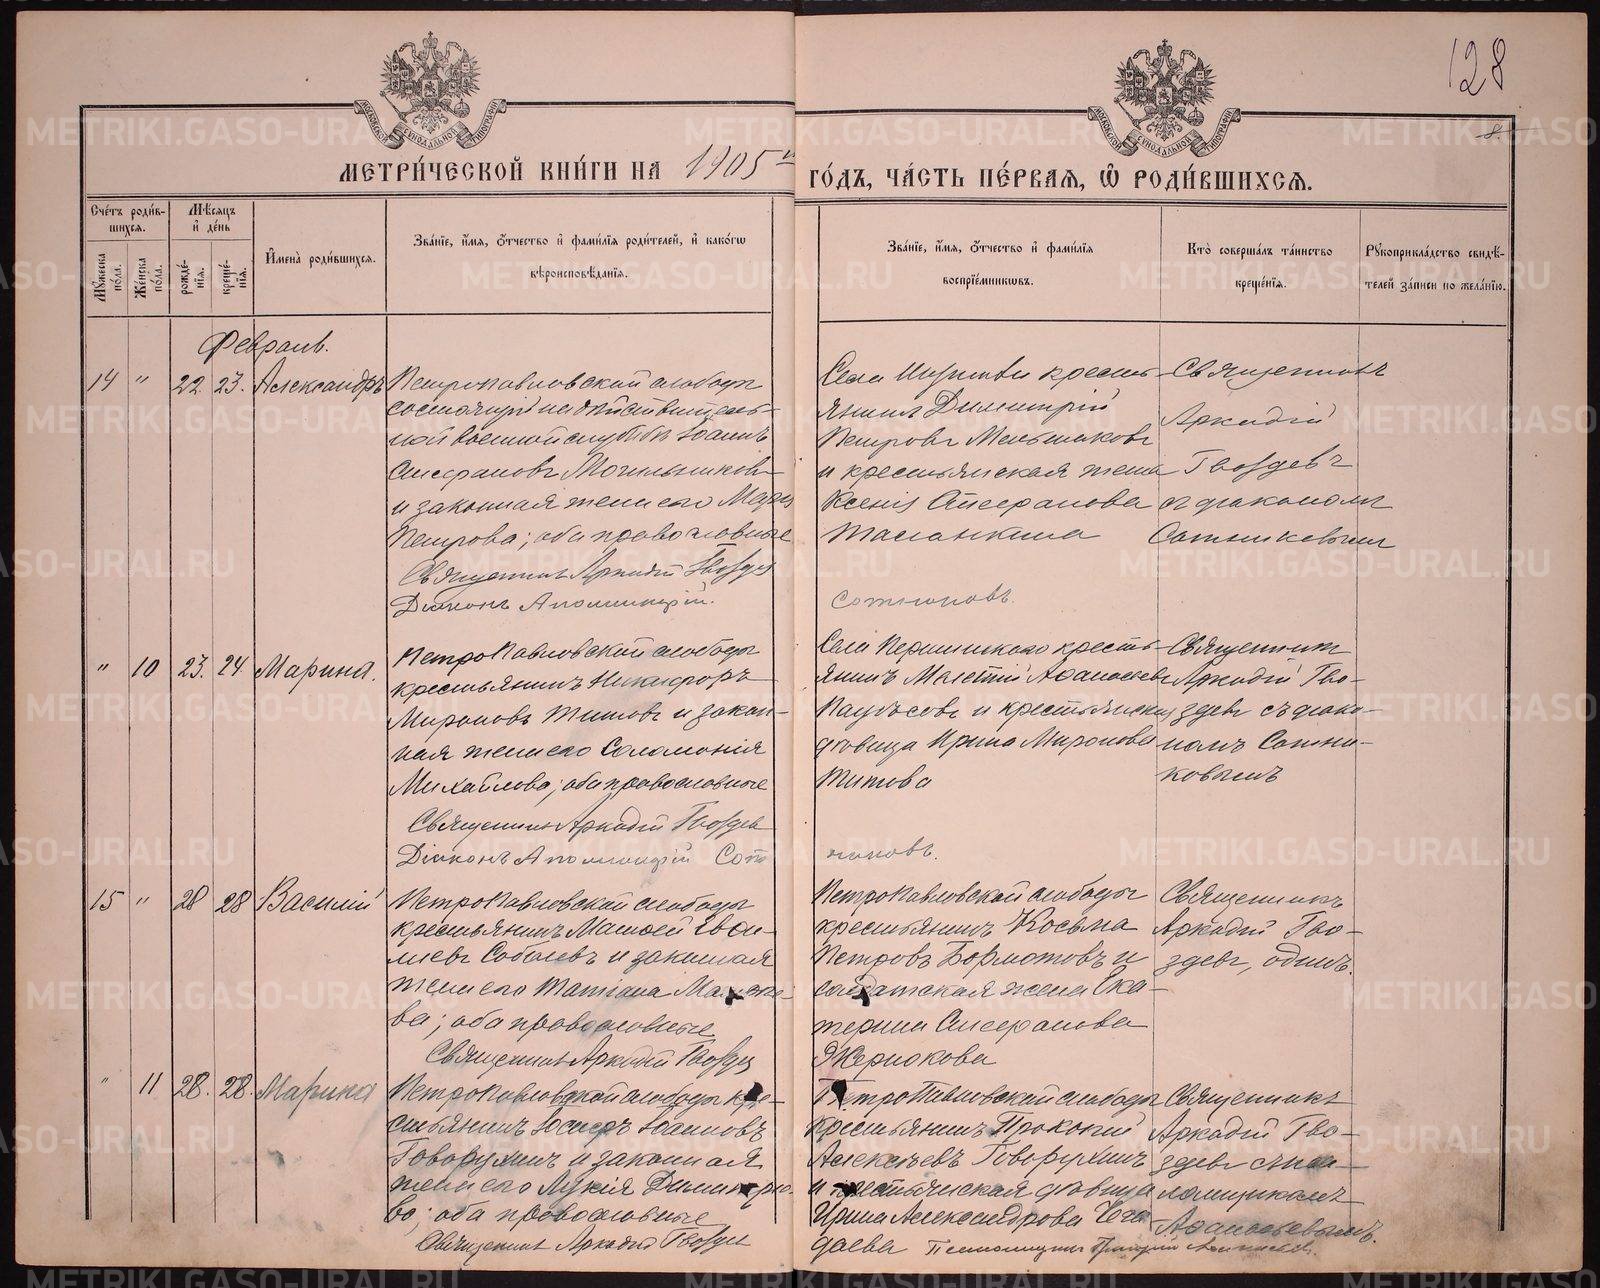 128
МЕТРИ́ЧЕСКОЙ КНИ́ГИ НА 1905 й ГО́ДЪ, ЧА́СТЬ ПЕ́РВАЯ, Ѡ РОДИ́ВШИХСЯ.
Сче́тъ роди́в-
шихся.
Мѣ́сяцъ
и де́нь
Мꙋ́жеска по́ла.
Же́нска по́ла.
рожде́-
нїя.
креще́-
нїя.
И҆мена̀ роди́вшихся.
Зва́нїе, и҆́мя, ѻ҆́тчество и҆ фами́лїя роди́телей, и҆ како́гѡ
вѣроисповѣ́данїя.
Зва́нїе, и҆́мя, ѻ҆́тчество и҆ фами́лїя
воспрїе́мникѡвъ.
Кто̀ соверша́лъ та́инство
креще́нїя.
Рꙋкоприкла́дство свидѣ́-
телей за́писи по жела́нїю.
Февраль.
14 " 22 23. Александръ
Петропавловской слободы
состоящій на дѣйствитель-
ной военной службѣ Іоаннъ
и законная жена его Марія
Петрова; оба православные
Священникъ Аркадій Гвоздевъ
Діаконъ Аполлинарій Сотниковъ.
крестья-
нинъ Димитрій
Петровъ Меньшиковъ
и крестьянская жена
Ксенія
Священникъ
Аркадій
Гвоздевъ
съ діакономъ
Сотниковымъ
" 10 23. 24 Марина.
Петропавловской слободы
крестьянинъ Никифоръ
Мироновъ Титовъ и закон-
ная жена его Соломонія
Михайлова; оба православные
Священникъ Аркадій Гвоздевъ
Діаконъ Аполлинарій Сотниковъ.
Села Першинскаго кресть-
янинъ
и крестьянская
дѣвица Ирина Миронова
Титова
Священникъ
Аркадій Гво-
здевъ съ діако-
номъ Сотни-
ковымъ
15 " 28 28 Василій
Петропавловской слободы
крестьянинъ Матѳей
Соболевъ и законная
жена его Татіана
ва; оба православные
Священникъ Аркадій Гвоздевъ
Петропавловской слободы
крестьянинъ Косьма
Петровъ Бормотовъ и
солдатская жена Ека-
терина
Священникъ
Аркадій Гво-
здевъ, одинъ.
" 11 28. 28. Марина
Петропавловской слободы кре-
стьянинъ Іосифъ Іоанновъ
Говорухинъ и законная
жена его Лукія Димитріе-
ва; оба православные
Священникъ Аркадій Гвоздевъ
Петропавловской слободы
крестьянинъ Прокопій
Алексѣевъ Говорухинъ
и крестьянская дѣвица
Ирина Александрова Чега-
даева
Священникъ
Аркадій Гво-
здевъ съ пса-
ломщикомъ
Псаломщикъ
METRIKI.GASO-URAL.RU